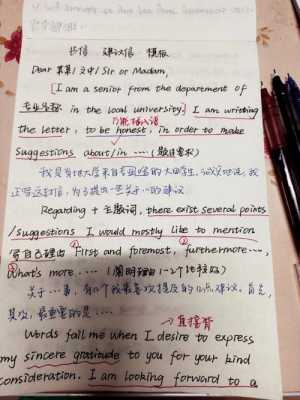 书信 建议信 模板
Dear 某某/文中/Sir or Madam,
[I am a senior from the department of
专业名称 in the local university.] I am writing
可能插入语
the letter, to be honest, in order to make
suggestions about/in ···· (题目要求)
我是当地大学来自专业的大四学生,说实话说,我
还写这封信,为了提出一些关于··的建议.
Regarding + 主题词, there exist several points
/suggestions I would mostly like to mention
写自己理由 ① First and foremost, ② furthermore····
③ What's more ···· (阐明理由1~2个比较好)
关于···事,有几个我最喜欢提及的几点建议.首先,
其次,最重要的是····
→直接背
Words fail me when I desire to express
my sincere gratitude to you for your kind
consideration. I am looking forward to a